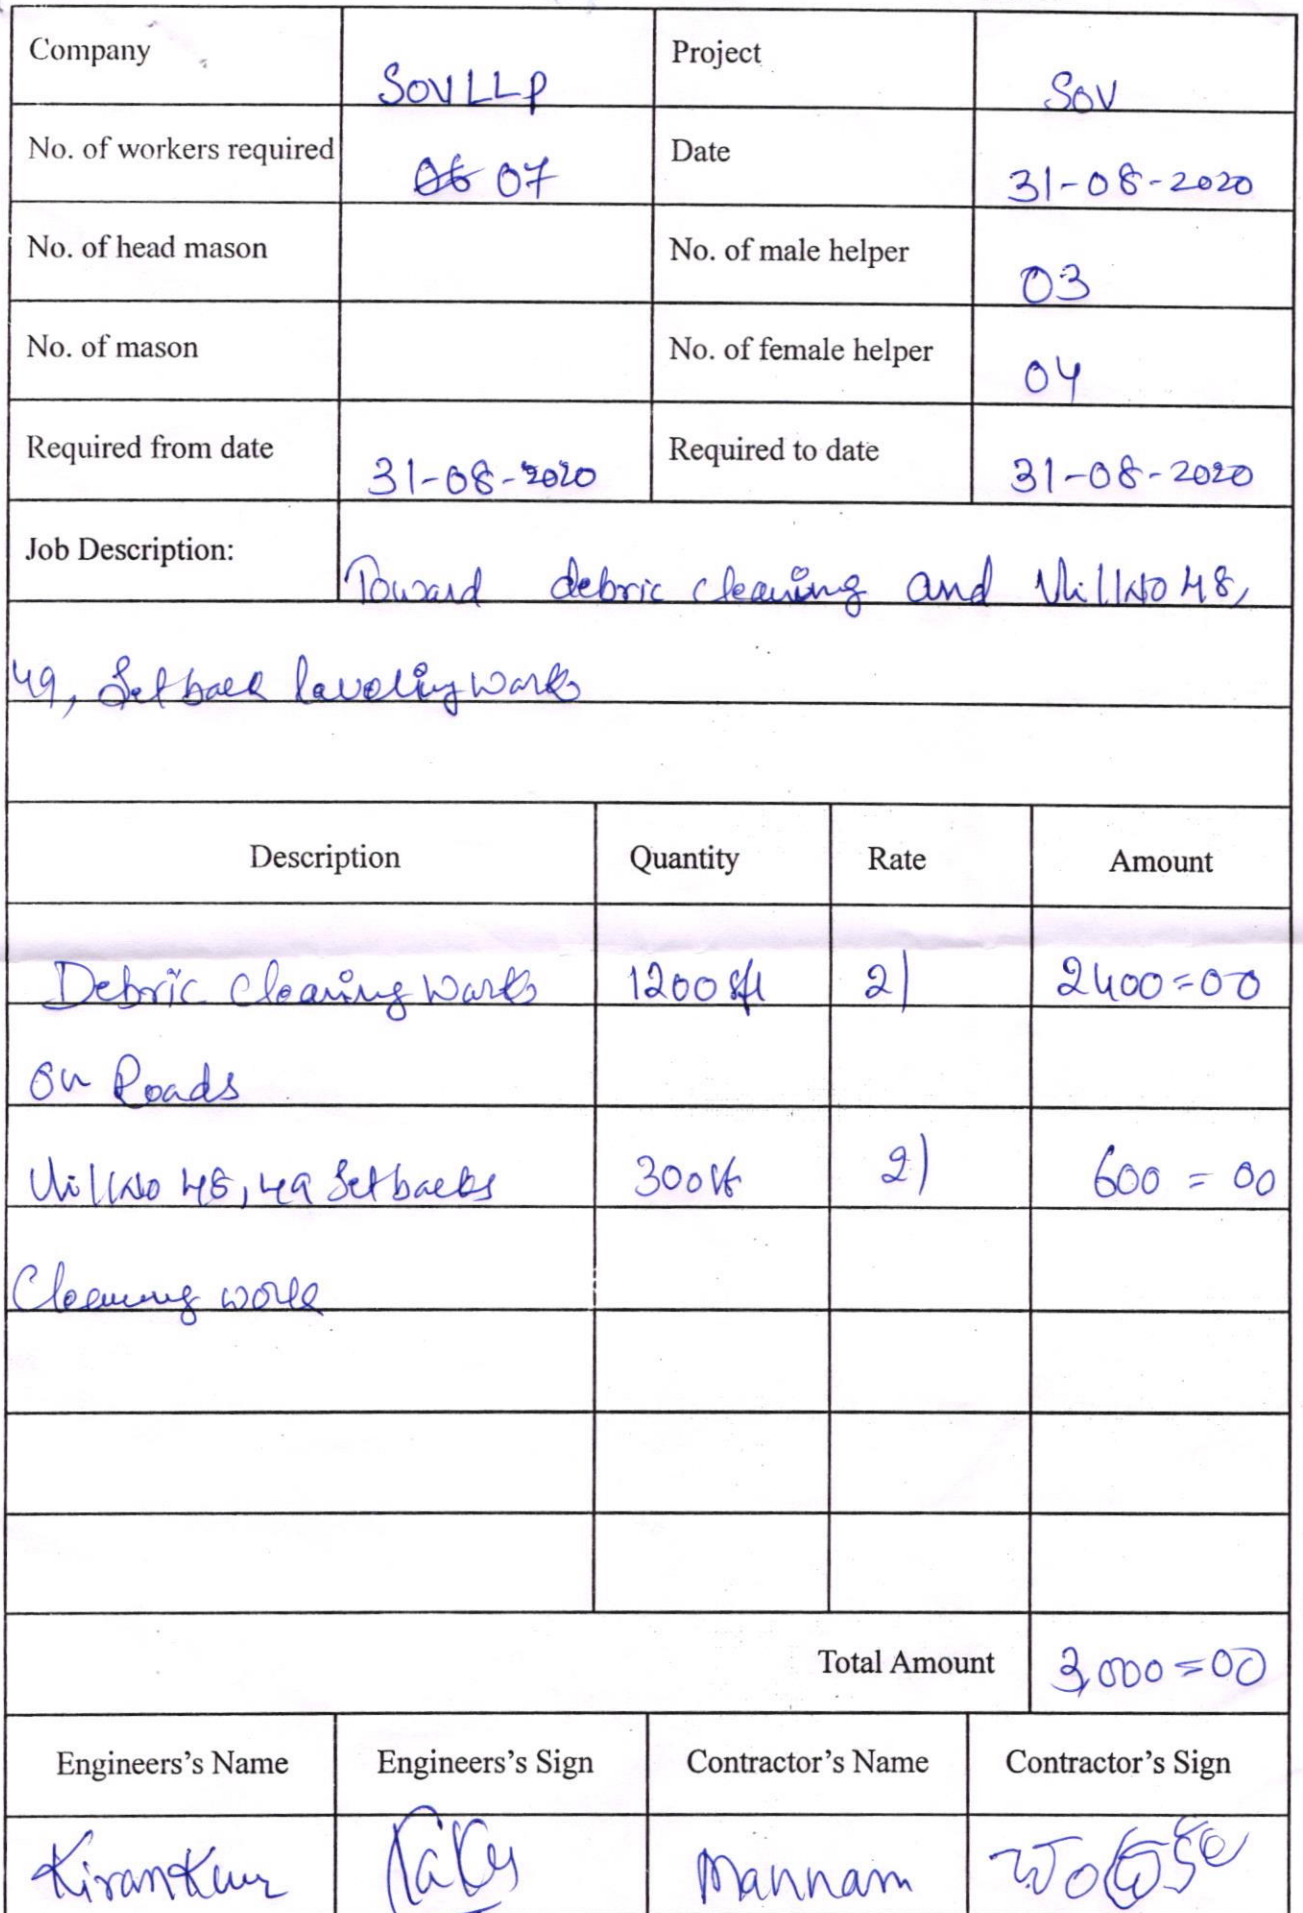 Company SOVLLP Project SOV
No. of workers required 06 07 Date 31-08-2020
No. of head mason No. of male helper 03
No. of mason No. of female helper 04
Required from date 31-08-2020 Required to date 31-08-2020
Job Description: Toward debric cleaning and VillNo 48,
49, Setback leveling works
Description Quantity Rate Amount
Debric Cleaning Works 1200 sft 2) 2400=00
on Roads
VillNo 48, 49 Setbacks 300 2) 600 = 00
Cleaning work
Total Amount 3,000=00
Engineers's Name Engineers's Sign Contractor's Name Contractor's Sign
Mannam